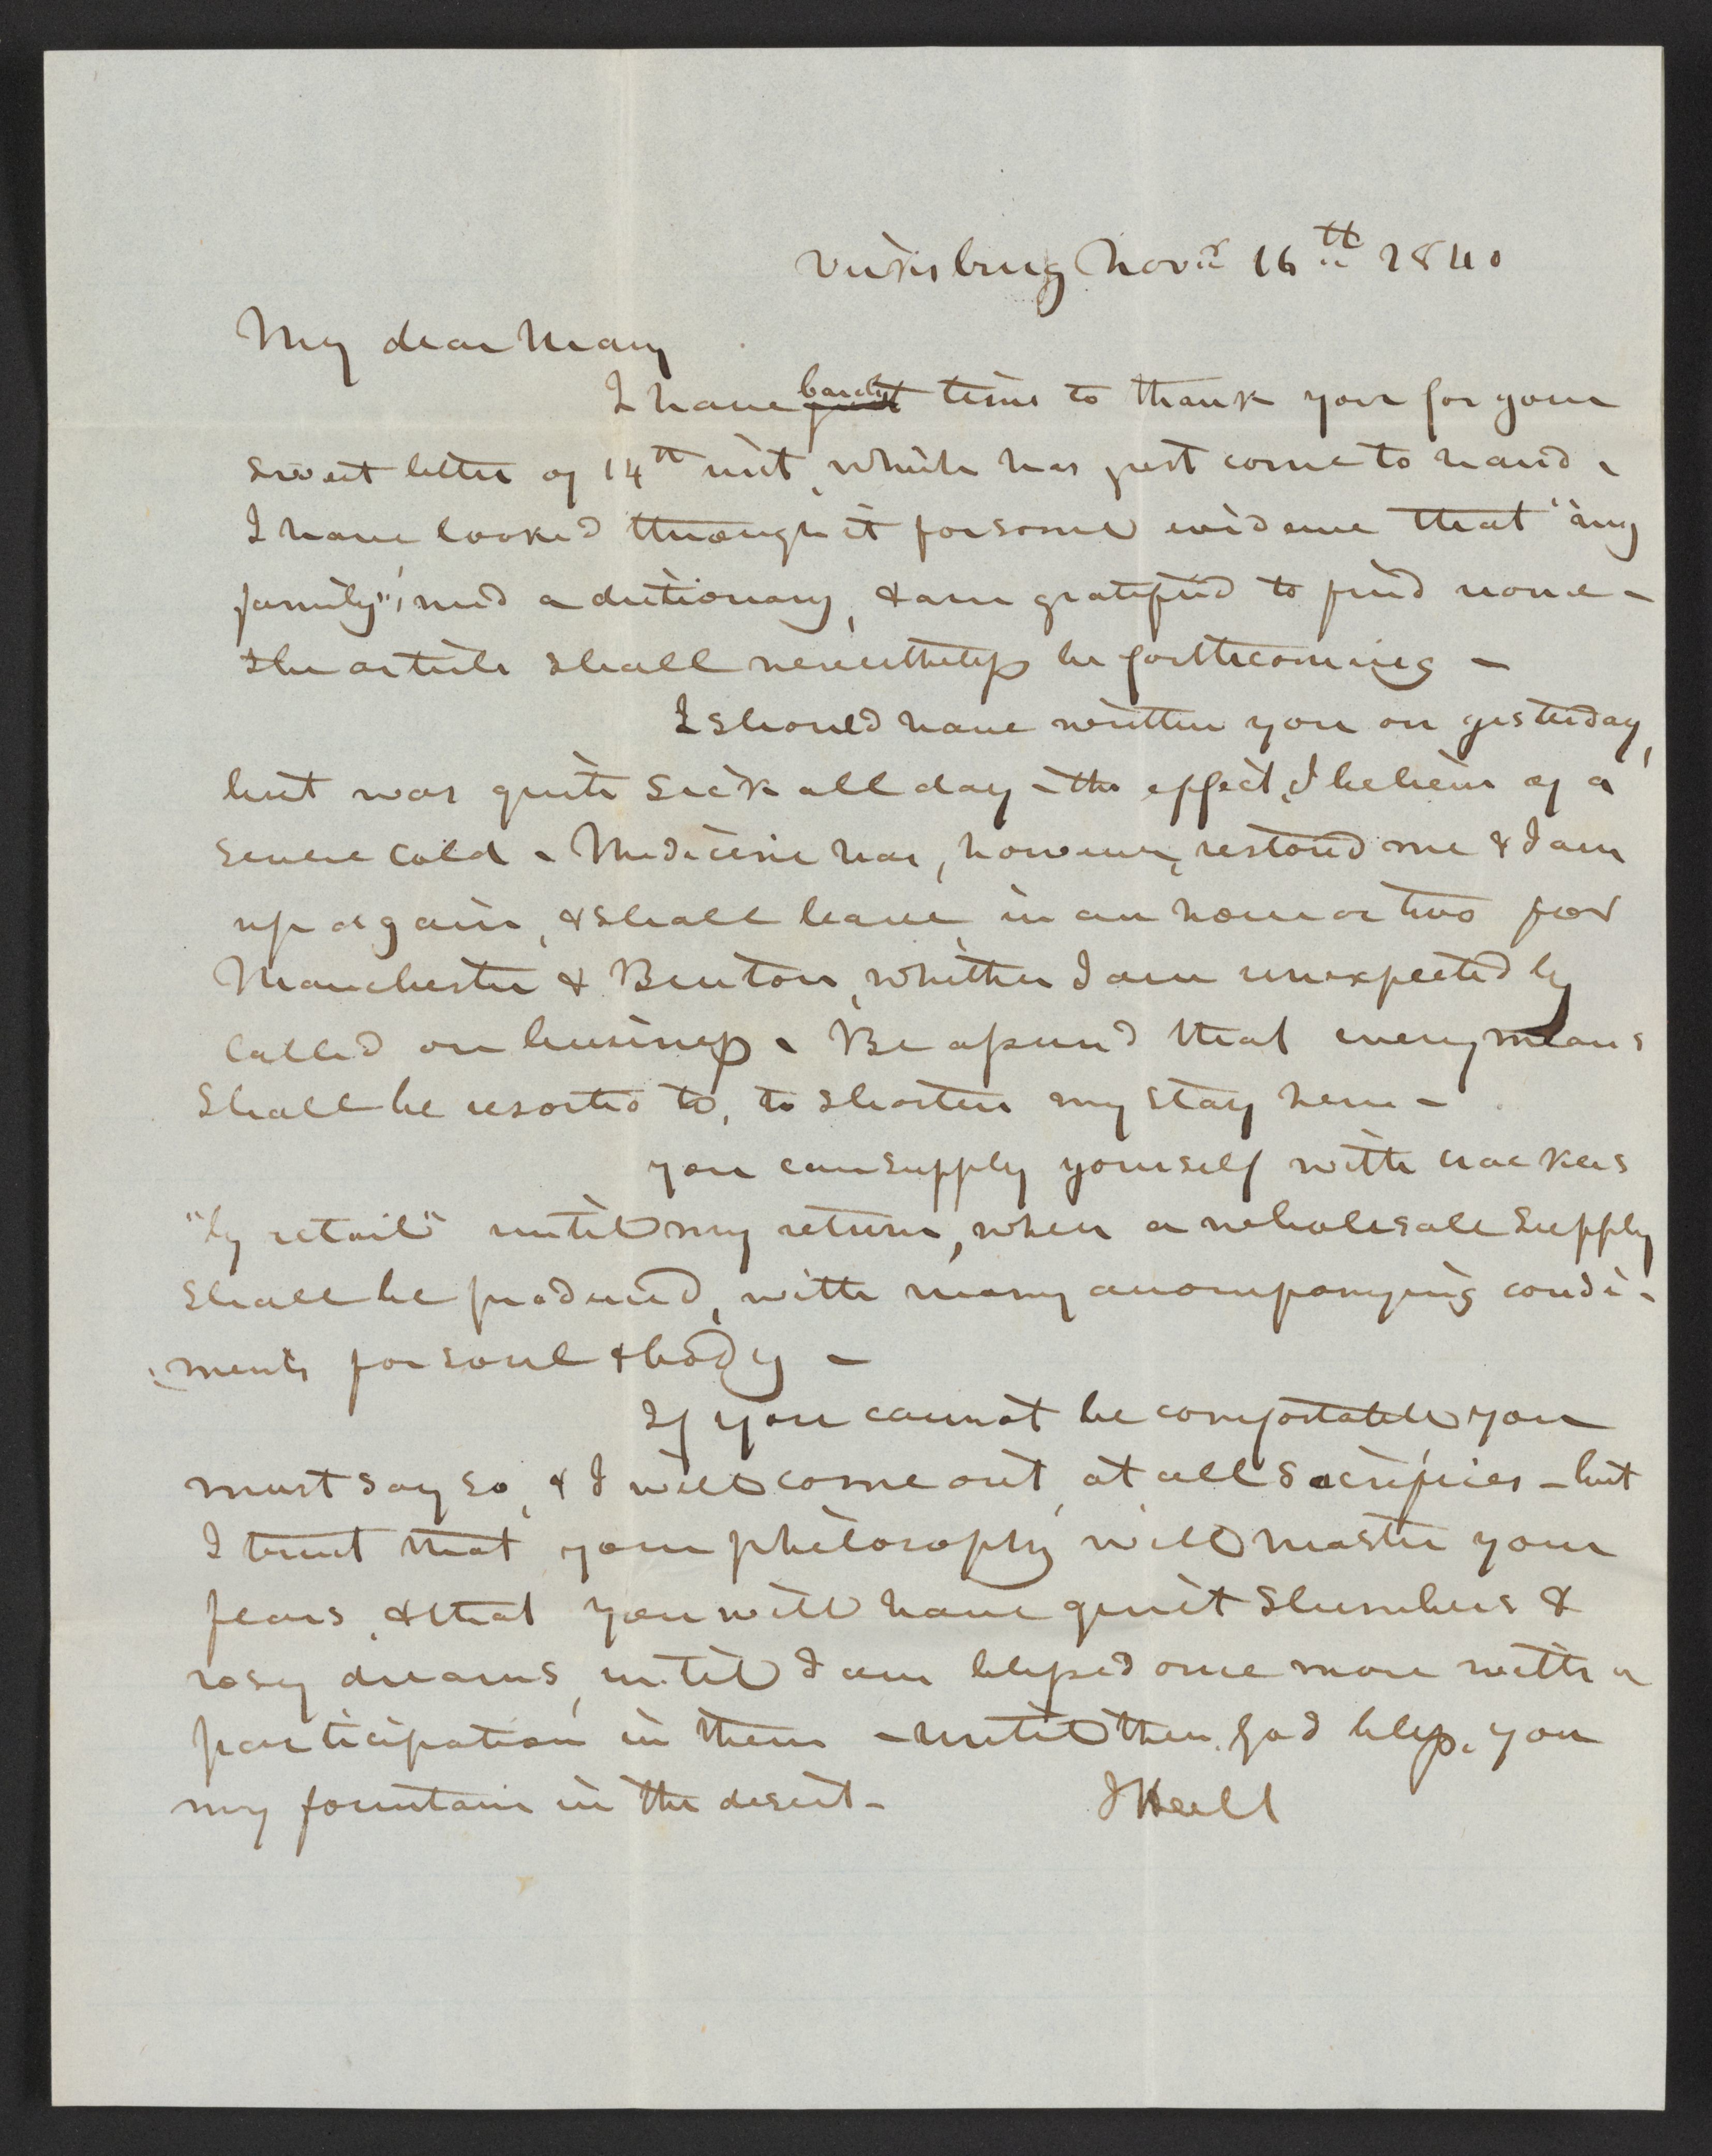 Vicksburg Novr 16th 1840
My dear Mary
I have barely just time to thank you for your
sweet letter of 14th inst, which has just come to hand -
I have looked through it for some evidence that "my
family", need a dictionary, & am gratified to find none -
The article shall nevertheless be forthcoming -
I should have written you on yesterday,
but was quite sick all day - the effect, I believe of a
severe cold - Medicine has, however, restored me & I am
up again, & shall leave in an hour or two for
Manchester & Benton, whither I am unexpectedly
called on business - Be assured that every means
shall be resorted to, to shorten my stay here -
you can supply yourself with crackers
"by retail" until my return, when a wholesale supply
shall be produced, with many accompanying condi-
ments for soul & body -
If you cannot be comfortable you
must say so, & I will come out, at all sacrifices - but
I trust that your philosophy will master your
fears, & that you will have quiet slumbers &
rosy dreams, until I am blessed once more with a
participation in them - until then, God bless you
my fountain in the desert -